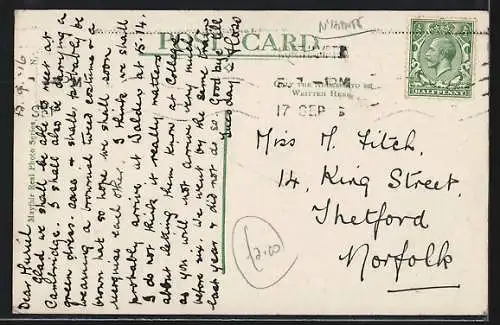 POST CARD
ONLY THE ADDRESS TO BE
WRITTEN HERE.
17 SEP
HALFPENNY
Mayfair Real Photo Series
Dear Muriel
Glad we shall be able to meet at
Cambridge. I shall also be wearing a
green dress. case & shall probably be
wearing a brownish tweed costume & a
brown hat so hope we shall soon
recognise each other. I think we shall
probably arrive at Walden at 5-14.
I do not think it really matters
about letting them know at College
as you will not arrive very much
before six. We went by the same train
last year & did not do so. Good bye till
Tues day.
Miss M. Fitch,
14, King Street,
Thetford
Norfolk
£2.00